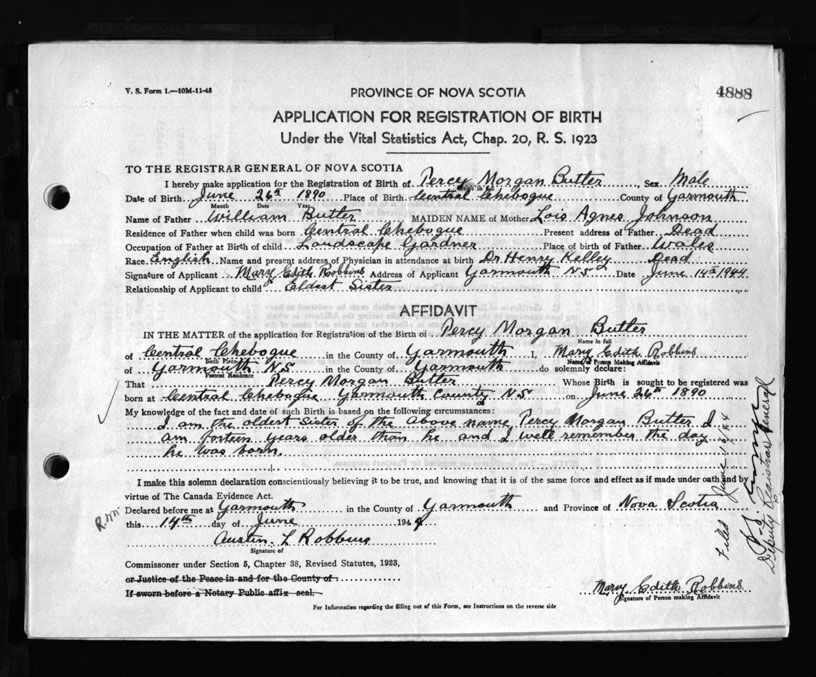 V. S. Form 1.—10M-11-43
PROVINCE OF NOVA SCOTIA
4888
APPLICATION FOR REGISTRATION OF BIRTH
Under the Vital Statistics Act, Chap. 20, R. S. 1923
TO THE REGISTRAR GENERAL OF NOVA SCOTIA
I hereby make application for the Registration of Birth of Percy Morgan Butler, Sex Male
Date of Birth June 26th 1890 Place of Birth Central Chebogue County of Yarmouth
Month Date Year
Name of Father William Butler MAIDEN NAME of Mother Lois Agnes Johnson
Residence of Father when child was born Central Chebogue Present address of Father Dead
Occupation of Father at Birth of child Landscape Gardner Place of birth of Father Wales
Race English Name and present address of Physician in attendance at birth Dr Henry Kelley Dead
Signature of Applicant Mary Edith Robbins Address of Applicant Yarmouth N S Date June 14th 1944
Relationship of Applicant to child Eldest Sister
AFFIDAVIT
IN THE MATTER of the application for Registration of the Birth of Percy Morgan Butler
Name in full
of Central Chebogue in the County of Yarmouth I, Mary Edith Robbins
Birth Place Name of Person Making Affidavit
of Yarmouth N.S. in the County of Yarmouth do solemnly declare:
Present Residence
That Percy Morgan Butler Whose Birth is sought to be registered was
born at Central Chebogue Yarmouth County N S on June 26th 1890
My knowledge of the fact and date of such Birth is based on the following circumstances:
I am the oldest sister of the above name Percy Morgan Butler I
am fortein years older than he and I well remember the day
he was born.
I make this solemn declaration conscientiously believing it to be true, and knowing that it is of the same force and effect as if made under oath and by
virtue of The Canada Evidence Act.
Declared before me at Yarmouth in the County of Yarmouth and Province of Nova Scotia
this 14th day of June 1944
Austin L Robbins
Signature of
Commissioner under Section 5, Chapter 38, Revised Statutes, 1923,
or Justice of the Peace in and for the County of
If sworn before a Notary Public affix seal.
Mary Edith Robbins
Signature of Person making Affidavit
For Information regarding the filling out of this Form, see Instructions on the reverse side
Filed June 16/44
Deputy Registrar General